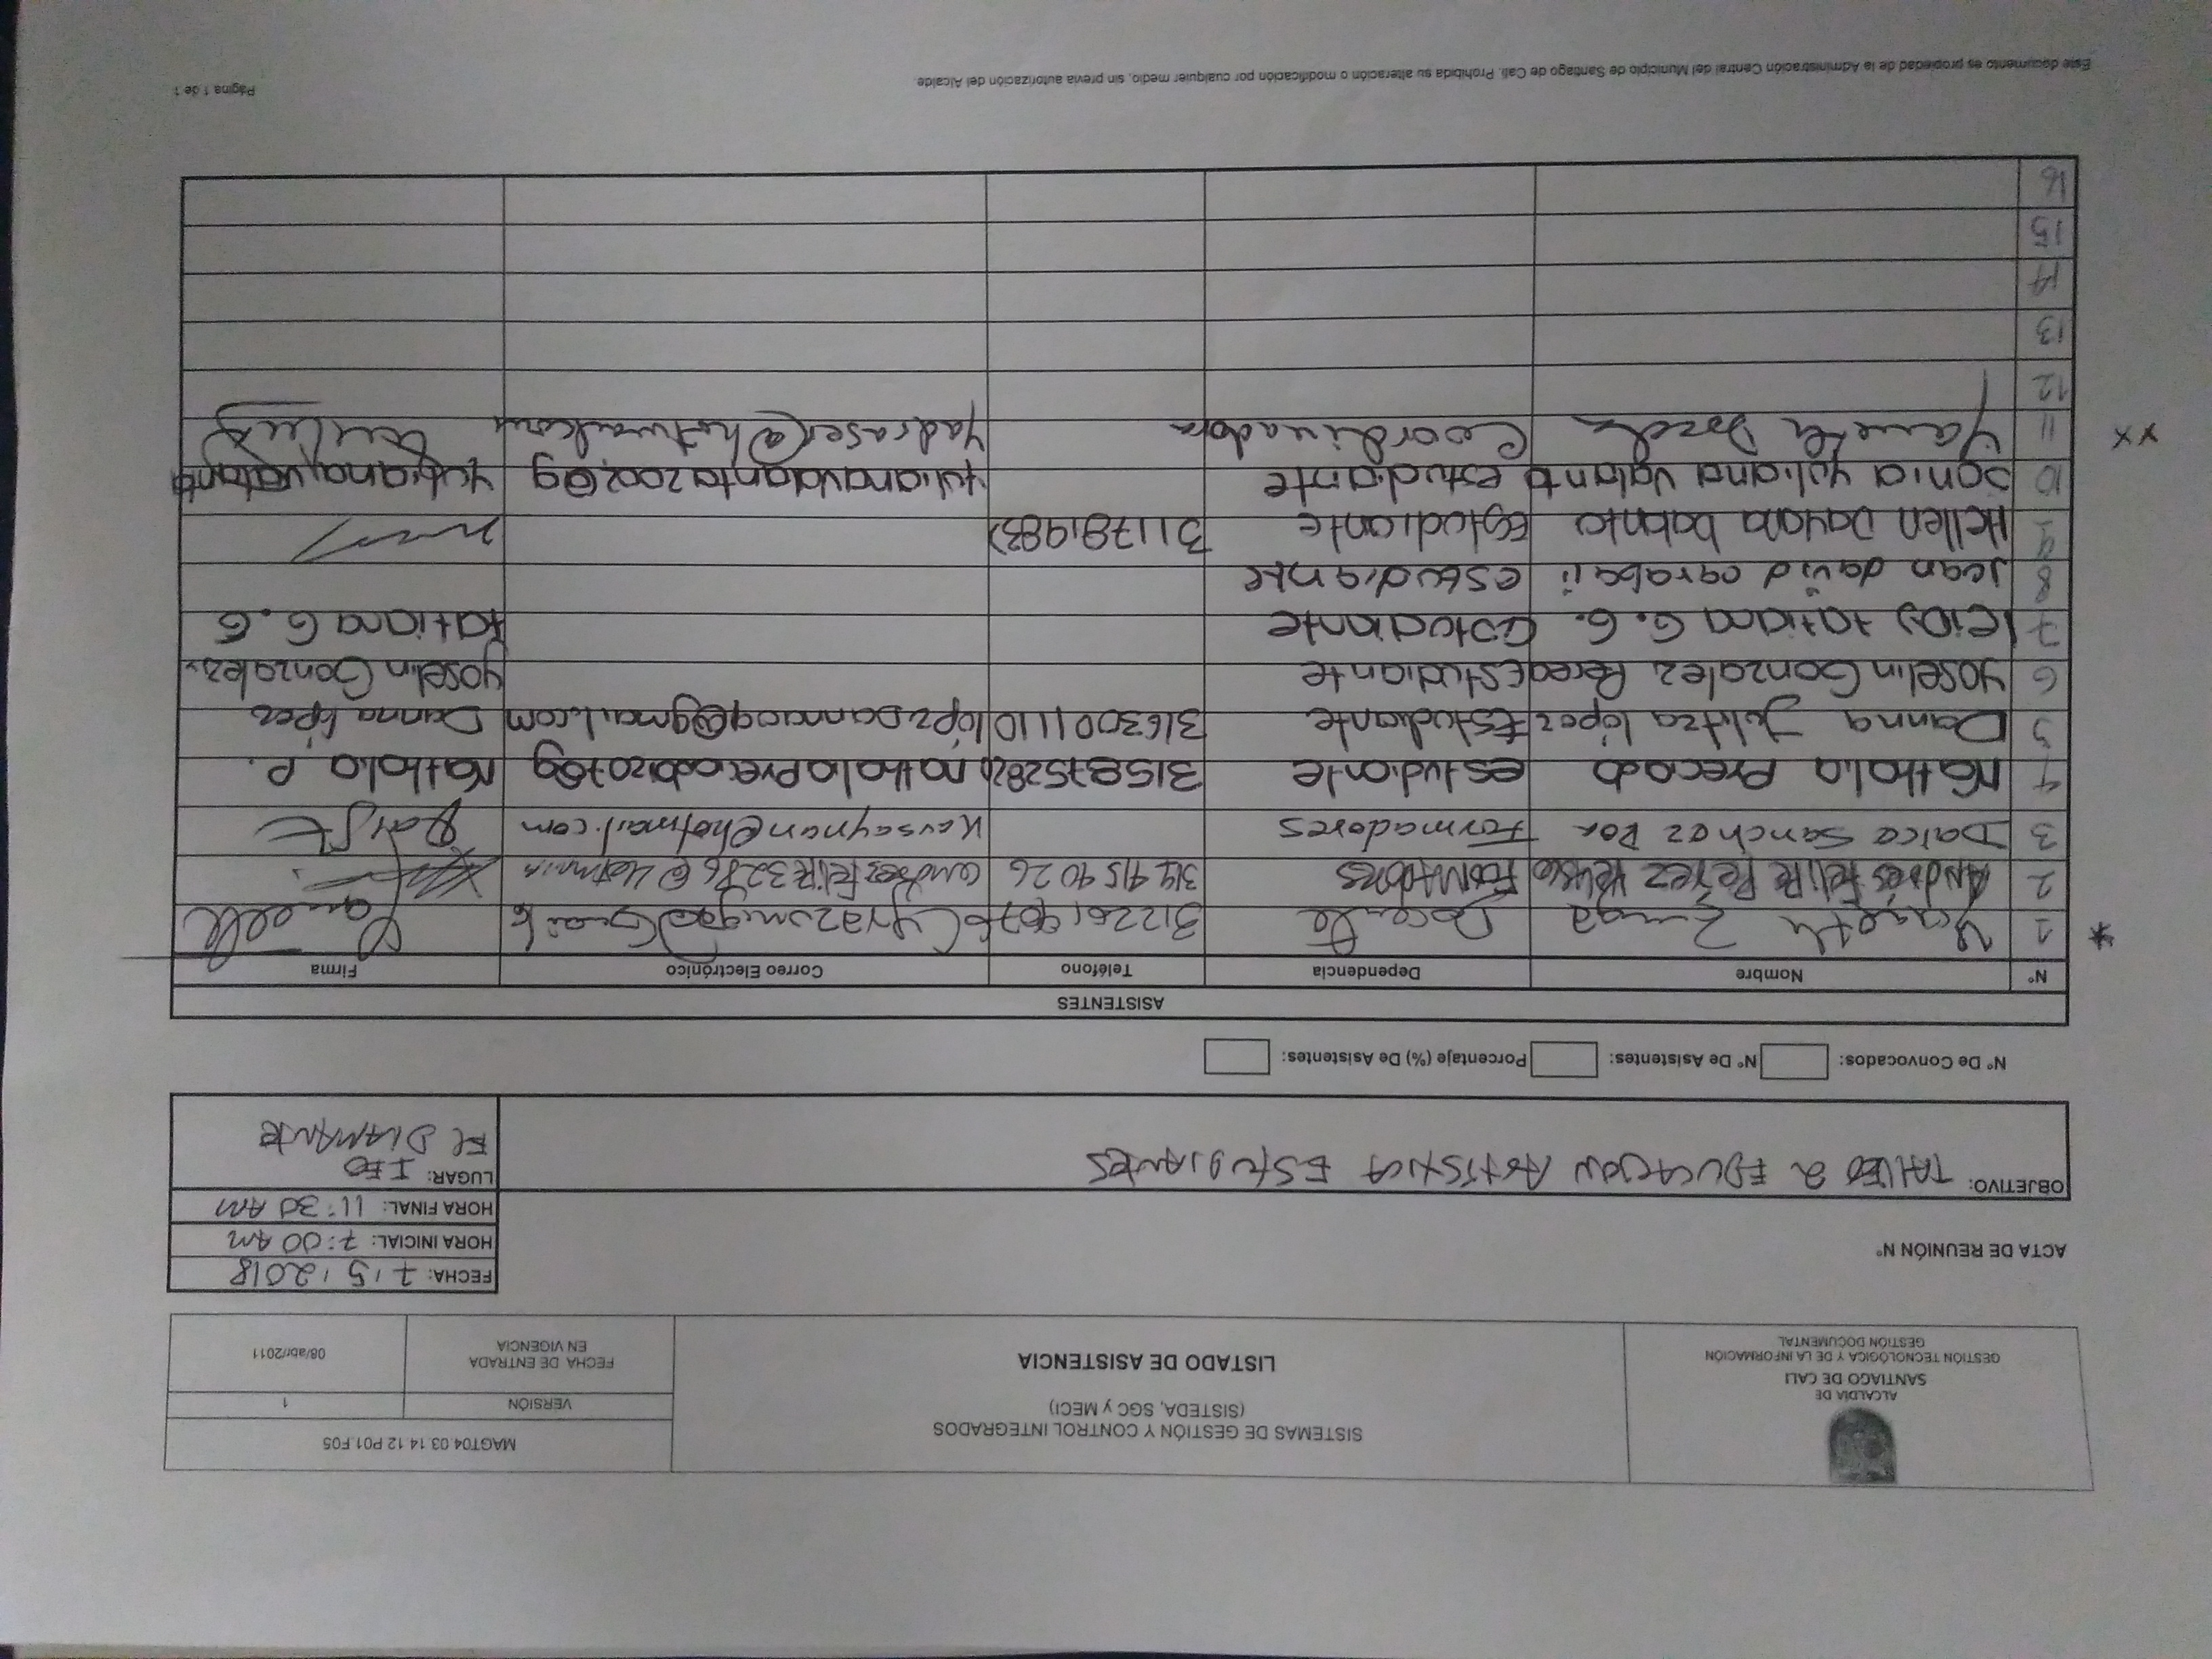 ALCALDÍA DE
SANTIAGO DE CALI
GESTIÓN TECNOLÓGICA Y DE LA INFORMACIÓN
GESTIÓN DOCUMENTAL
SISTEMAS DE GESTIÓN Y CONTROL INTEGRADOS
(SISTEDA, SGC y MECI)
LISTADO DE ASISTENCIA
MAGT04.03.14.12.P01.F05
VERSIÓN 1
FECHA DE ENTRADA EN VIGENCIA 08/abr/2011
ACTA DE REUNIÓN N°
FECHA: 7 / 5 / 2018
HORA INICIAL: 7:00 AM
HORA FINAL: 11:30 AM
OBJETIVO: 2 EDUCACION ArtÍStICA EStUDIANtES
LUGAR: IEO
El DIAMANTE
N° De Convocados: N° De Asistentes: Porcentaje (%) De Asistentes:
ASISTENTES
N° Nombre Dependencia Teléfono Correo Electrónico Firma
1 Yaneth Zuniga Docente
2 Andrés Felipe Pérez Velasco FORMAdORES 319 415 40 26
3 Daice Sanchez Formadores Kavsaynan@hotmail.com
4 Nathalia Preciado estudiante 3158752820 Nathalia P.
5 Danna Julitza lópez Estudiante 3163001110 lópzDannao9@gmail.com Danna lópez
6 yoselin Gonzalez Perea Estudiante yoselin Gonzalez
7 leidy tatiana G. G. estudiante tatiana G. G
8 Jean david carabali estudiante
9 Hellen Dayana balanta Estudiante
10 Sonia yuliana Valanta estudiante yulianavalanta2002@g yuliana valanta
11 Yaneth Coordinadora yadraser@hotmail.com
12
13
14
15
16
Este documento es propiedad de la Administración Central del Municipio de Santiago de Cali. Prohibida su alteración o modificación por cualquier medio, sin previa autorización del Alcalde.
Página 1 de 1